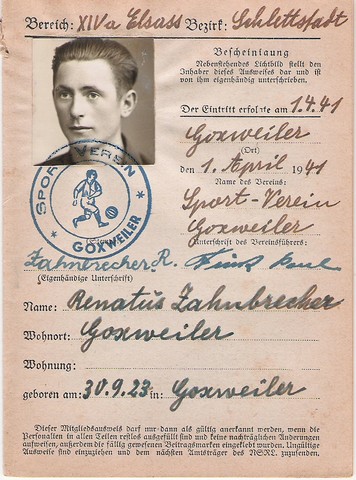 Bereich: XIVa Elsass Bezirk: Schlettstadt
Bescheinigung
Nebenstehendes Lichtbild stellt den
Inhaber dieses Ausweises dar und ist
von ihm eigenhändig unterschrieben.
Der Eintritt erfolgte am 1.4.41
Goxweiler
(Ort)
den 1. April 1941
Name des Vereins:
Sport-Verein
Goxweiler
SPORT VEREIN
GOXWEILER
Unterschrift des Vereinsführers:
Zahnbrecher R.
(Eigenhändige Unterschrift)
Name: Renatus Zahnbrecher
Wohnort: Goxweiler
Wohnung:
geboren am: 30.9.23 in: Goxweiler
Dieser Mitgliedsausweis darf nur dann als gültig anerkannt werden, wenn die
Personalien in allen Teilen restlos ausgefüllt sind und keine nachträglichen Änderungen
aufweisen, außerdem die fällig gewesenen Beitragsmarken eingeklebt wurden. Ungültige
Ausweise sind einzuziehen und dem nächsten Amtsträger des NSRL. zuzusenden.